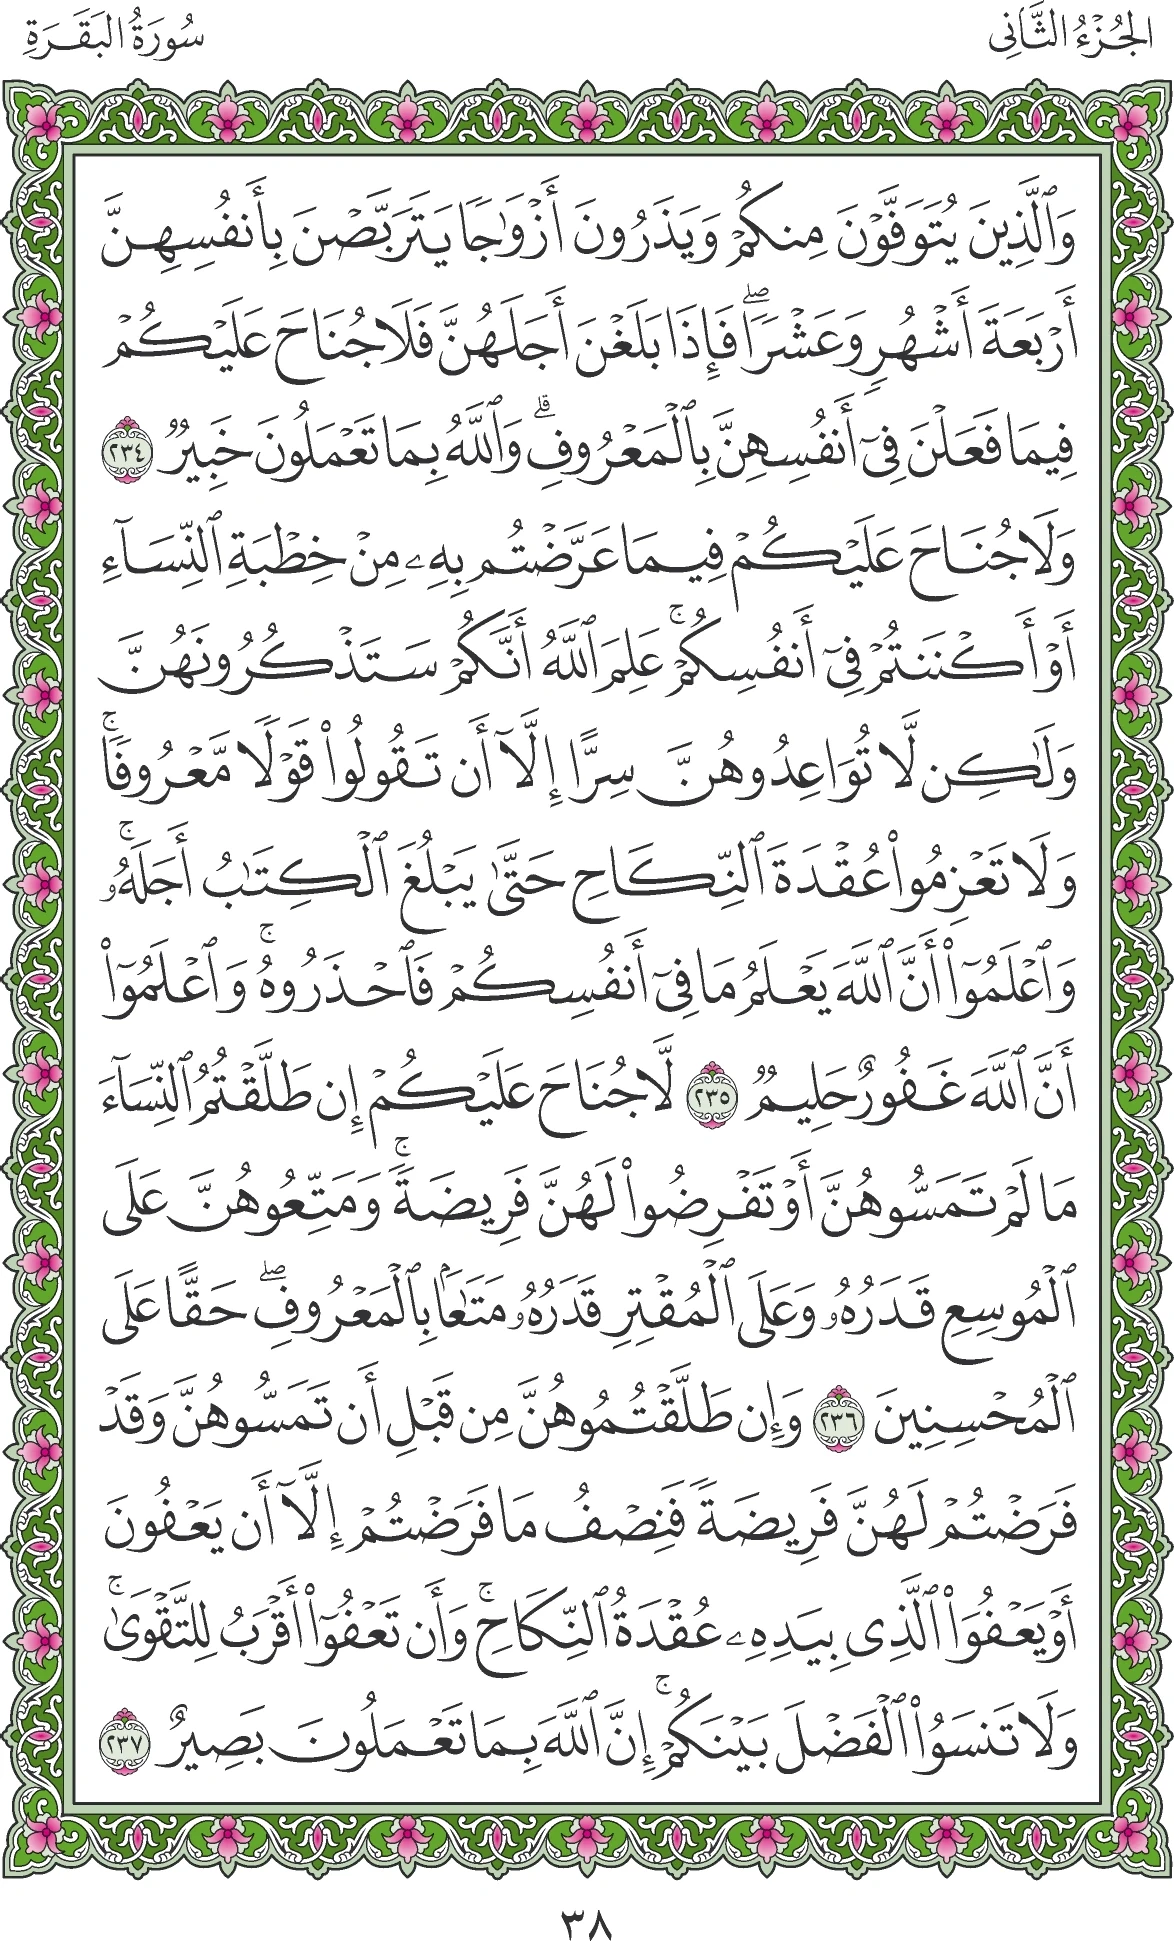 الجُزْءُ الثَّانِي
سُورَةُ البَقَرَةِ
وَٱلَّذِينَ يُتَوَفَّوْنَ مِنكُمْ وَيَذَرُونَ أَزْوَٰجًا يَتَرَبَّصْنَ بِأَنفُسِهِنَّ
أَرْبَعَةَ أَشْهُرٍ وَعَشْرًا ۖ فَإِذَا بَلَغْنَ أَجَلَهُنَّ فَلَا جُنَاحَ عَلَيْكُمْ
فِيمَا فَعَلْنَ فِىٓ أَنفُسِهِنَّ بِٱلْمَعْرُوفِ ۗ وَٱللَّهُ بِمَا تَعْمَلُونَ خَبِيرٌ ٢٣٤
وَلَا جُنَاحَ عَلَيْكُمْ فِيمَا عَرَّضْتُم بِهِۦ مِنْ خِطْبَةِ ٱلنِّسَآءِ
أَوْ أَكْنَنتُمْ فِىٓ أَنفُسِكُمْ ۚ عَلِمَ ٱللَّهُ أَنَّكُمْ سَتَذْكُرُونَهُنَّ
وَلَٰكِن لَّا تُوَاعِدُوهُنَّ سِرًّا إِلَّآ أَن تَقُولُوا۟ قَوْلًا مَّعْرُوفًا ۚ
وَلَا تَعْزِمُوا۟ عُقْدَةَ ٱلنِّكَاحِ حَتَّىٰ يَبْلُغَ ٱلْكِتَٰبُ أَجَلَهُۥ ۚ
وَٱعْلَمُوٓا۟ أَنَّ ٱللَّهَ يَعْلَمُ مَا فِىٓ أَنفُسِكُمْ فَٱحْذَرُوهُ ۚ وَٱعْلَمُوٓا۟
أَنَّ ٱللَّهَ غَفُورٌ حَلِيمٌ ٢٣٥ لَّا جُنَاحَ عَلَيْكُمْ إِن طَلَّقْتُمُ ٱلنِّسَآءَ
مَا لَمْ تَمَسُّوهُنَّ أَوْ تَفْرِضُوا۟ لَهُنَّ فَرِيضَةً ۚ وَمَتِّعُوهُنَّ عَلَى
ٱلْمُوسِعِ قَدَرُهُۥ وَعَلَى ٱلْمُقْتِرِ قَدَرُهُۥ مَتَٰعًۢا بِٱلْمَعْرُوفِ ۖ حَقًّا عَلَى
ٱلْمُحْسِنِينَ ٢٣٦ وَإِن طَلَّقْتُمُوهُنَّ مِن قَبْلِ أَن تَمَسُّوهُنَّ وَقَدْ
فَرَضْتُمْ لَهُنَّ فَرِيضَةً فَنِصْفُ مَا فَرَضْتُمْ إِلَّآ أَن يَعْفُونَ
أَوْ يَعْفُوَا۟ ٱلَّذِى بِيَدِهِۦ عُقْدَةُ ٱلنِّكَاحِ ۚ وَأَن تَعْفُوٓا۟ أَقْرَبُ لِلتَّقْوَىٰ ۚ
وَلَا تَنسَوُا۟ ٱلْفَضْلَ بَيْنَكُمْ ۚ إِنَّ ٱللَّهَ بِمَا تَعْمَلُونَ بَصِيرٌ ٢٣٧
٣٨